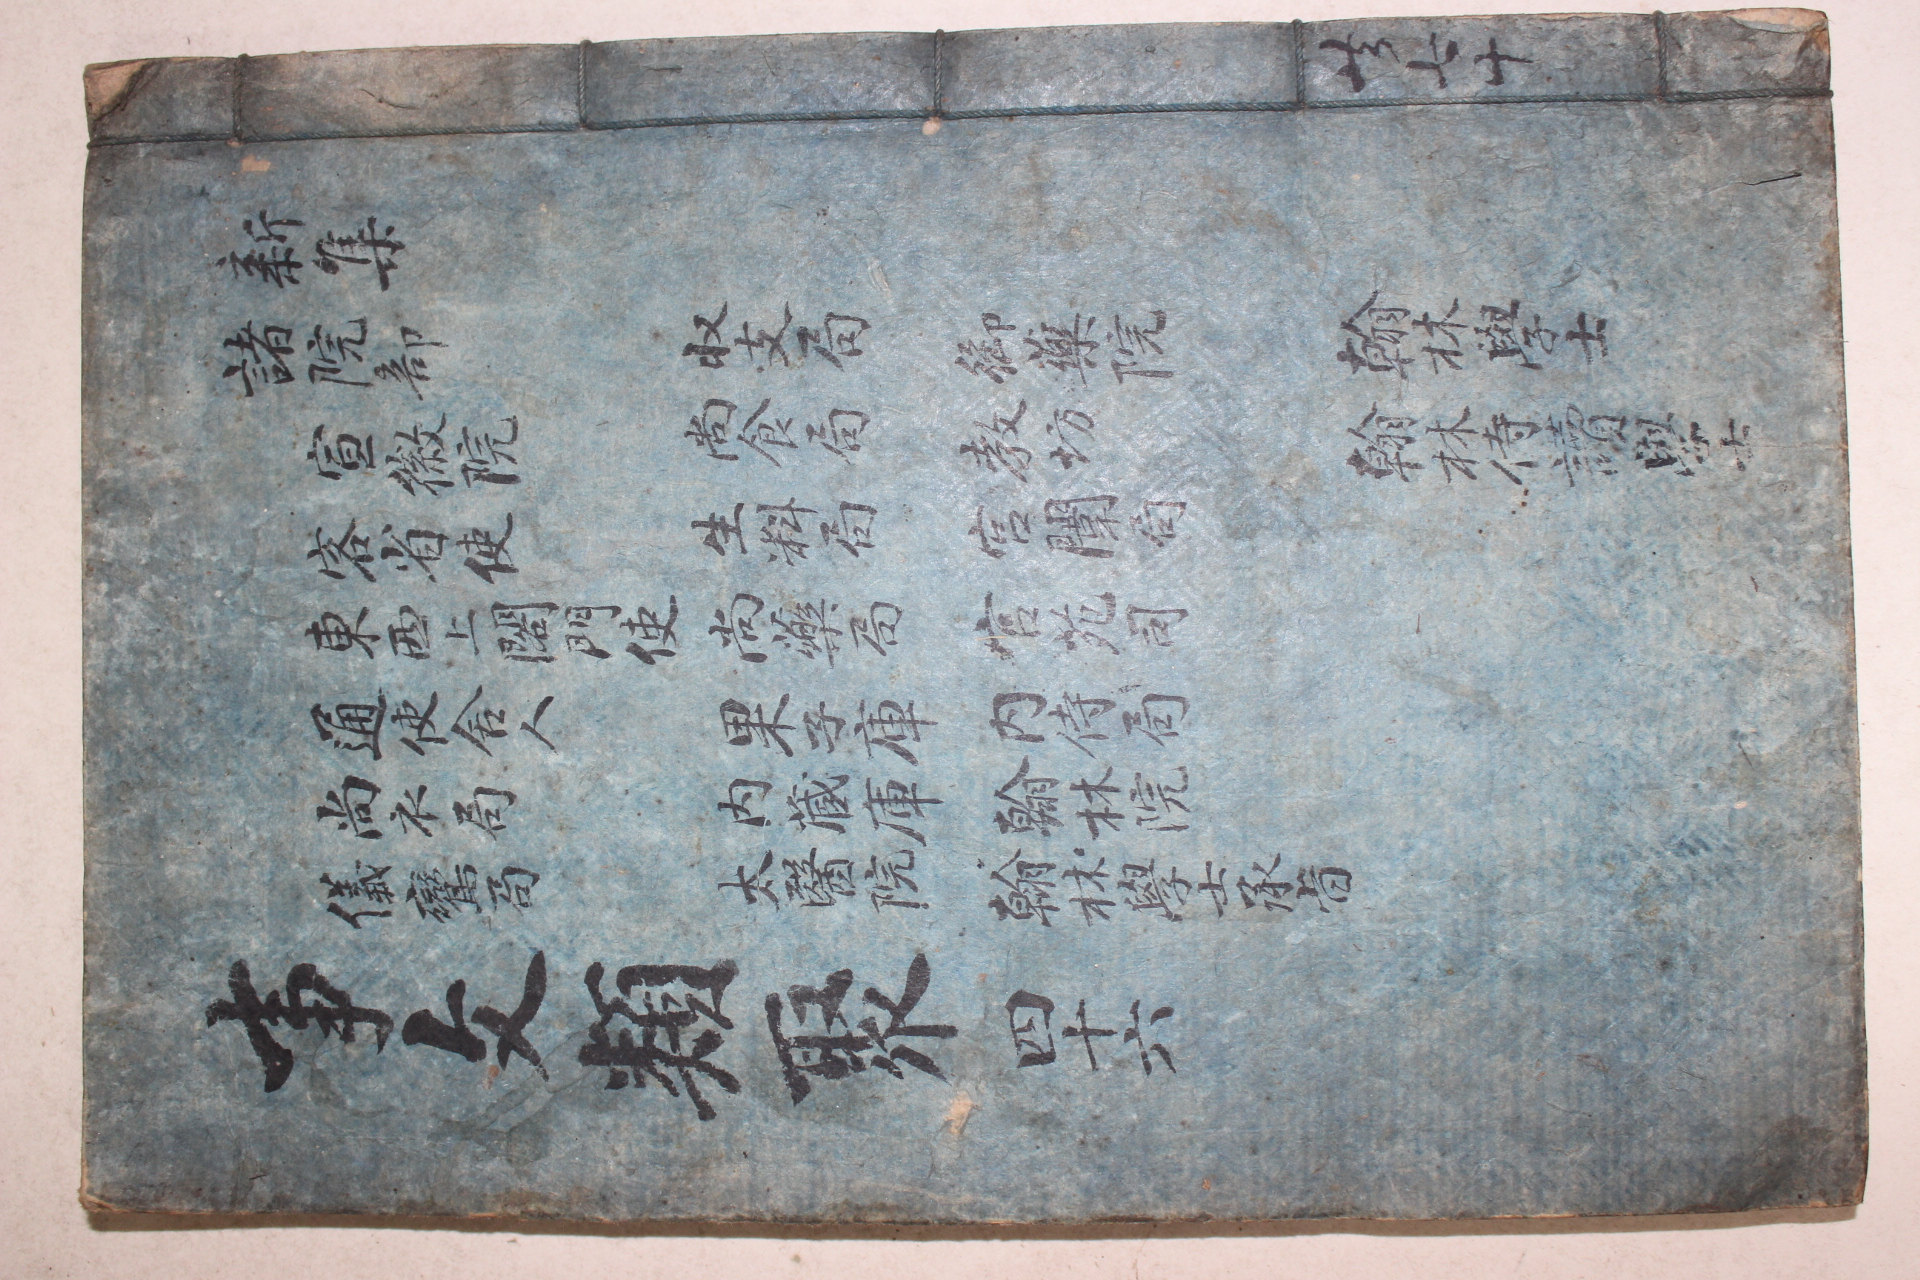 共七十
新集
諸院部
宣徽院
客省使
東西上閤門使
通使舍人
尚衣局
儀鸞局
收支局
尚食局
生料局
尚藥局
果子庫
內藏庫
太醫院
御藥院
教坊
宮闈局
宮苑司
內侍局
翰林院
翰林學士承旨
翰林學士
翰林侍讀學士
事文類聚 四十六